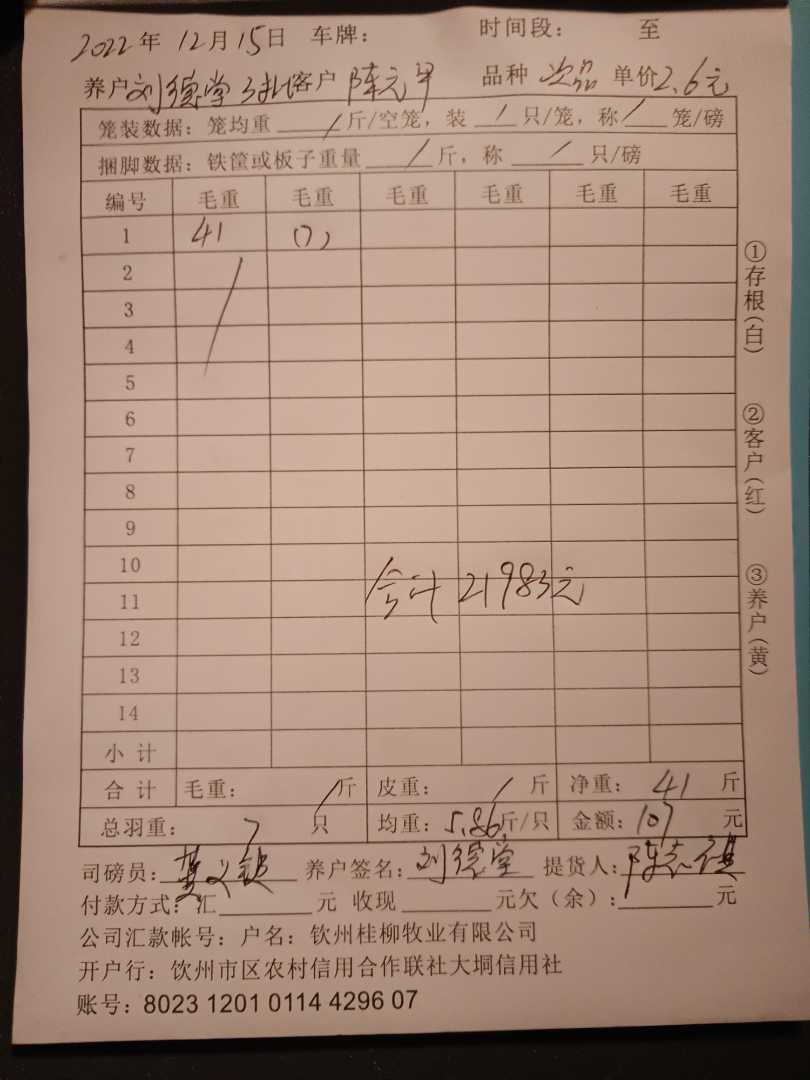 2022年 12月15日 车牌： 时间段： 至
养户 刘德堂 客户 陈元甲 品种 次品 单价 2.6元
笼装数据：笼均重 / 斤/空笼，装 / 只/笼，称 / 笼/磅
捆脚数据：铁筐或板子重量 / 斤，称 / 只/磅
编号 毛重 毛重 毛重 毛重 毛重 毛重
1 41 (7)
2
3
4
5
6
7
8
9
10
11 合计 21983元
12
13
14
小计
合计 毛重： / 斤 皮重： / 斤 净重： 41 斤
总羽重： 7 只 均重： 5.86 斤/只 金额： 107 元
司磅员： 养户签名：刘德堂 提货人：陈志祺
付款方式：汇 元 收现 元欠（余）： 元
公司汇款帐号：户名：钦州桂柳牧业有限公司
开户行：饮州市区农村信用合作联社大垌信用社
账号：8023 1201 0114 4296 07
①存根（白）
②客户（红）
③养户（黄）